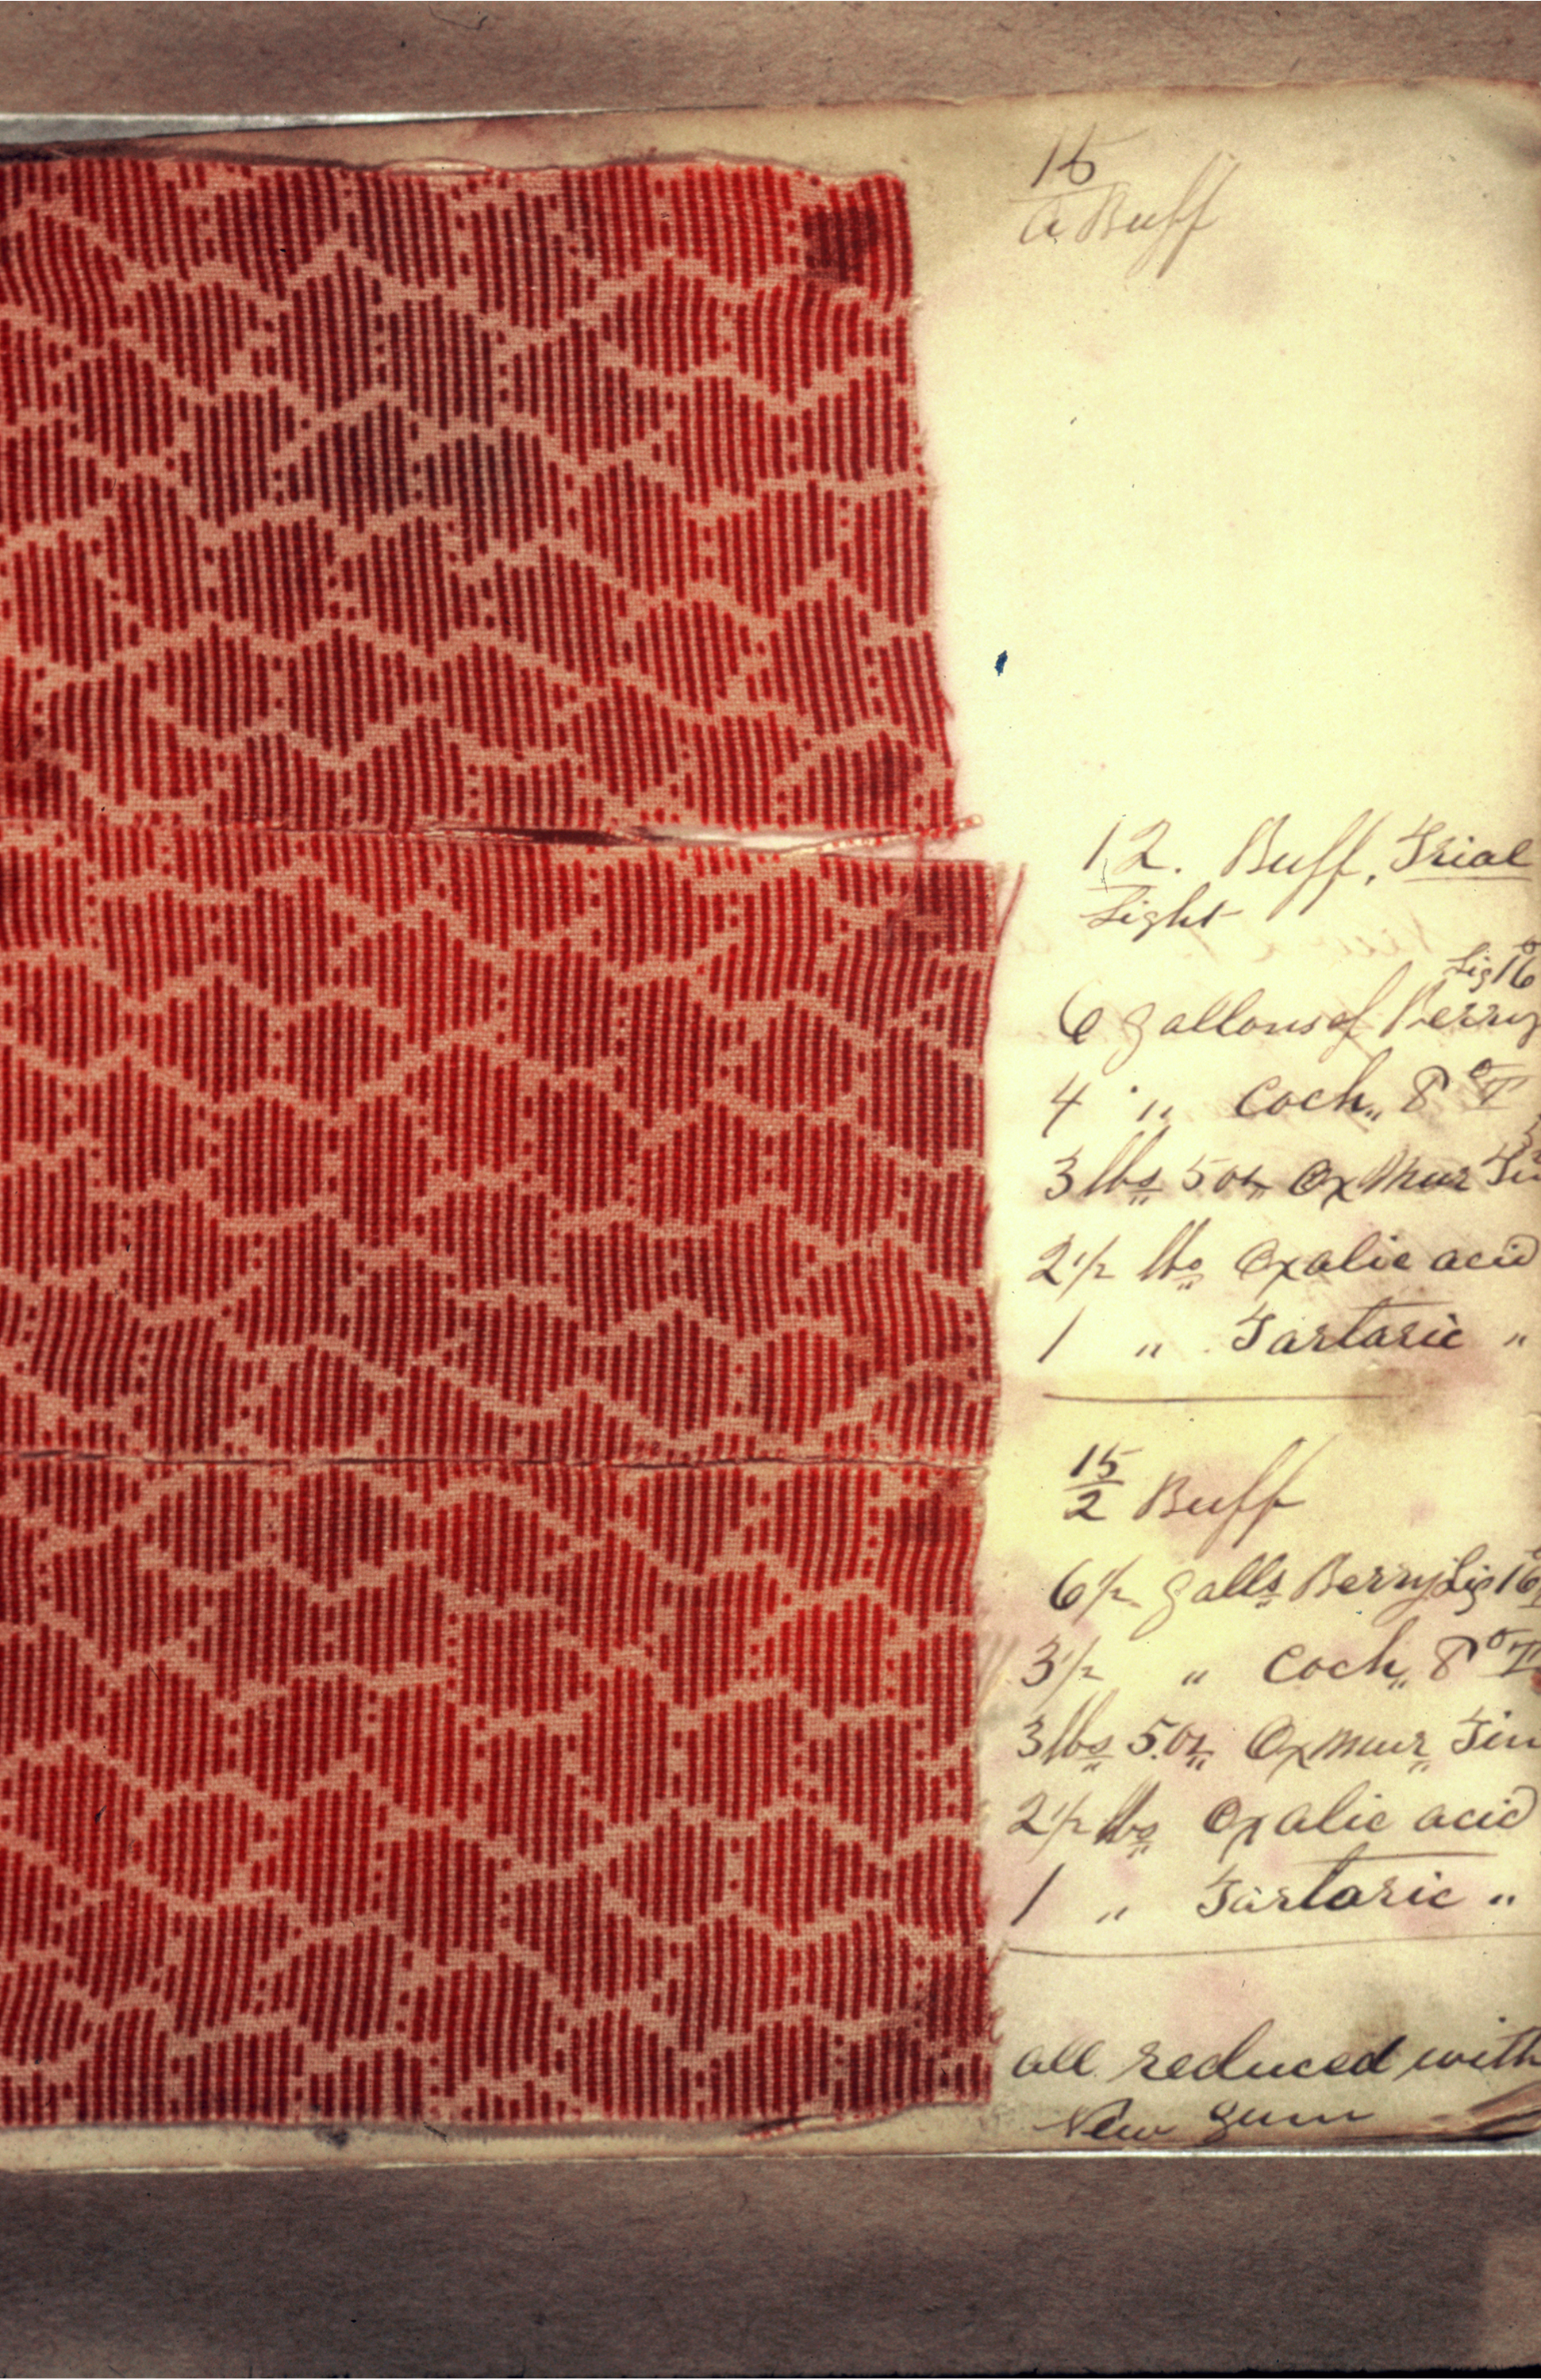 15
a Buff
12. Buff, Trial
Light
Liq 16°
6 gallons of Berry
4 " " Coch,, 8° T
3 lbs 5 oz Ox Mur Tin
2 1/2 lbs Oxalic acid
1 " Tartaric "
15/2 Buff
6 1/2 galls Berry Liq 16°
3 1/2 " Coch,, 8° T
3 lbs 5 oz Ox Mur Tin
2 1/2 lbs Oxalic acid
1 " Tartaric "
all reduced with
New gum